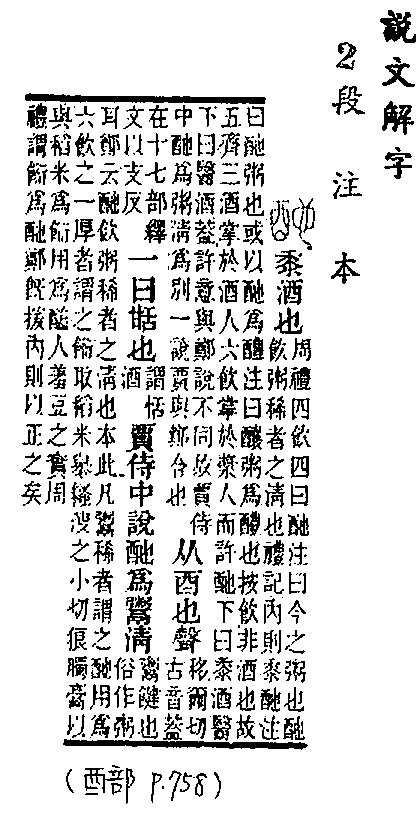 說文解字
2段注本
黍酒也周禮四飲四曰酏注曰今之粥也酏
飲粥稀者之清也禮記內則黍酏注
曰酏粥也或以酏為醴注曰釀粥為醴也按飲非酒也故
五齊三酒掌於酒人六飲掌於漿人而許酏下曰黍酒醫
下曰醫酒蓋許意與鄭說不同故賈侍
中酏為粥清為別一說賈與鄭合也
从酉也聲移爾切
古音蓋
在十七部釋
文以支反
一曰甛也謂恬
酒
賈侍中說酏為鬻清鬻鍵也
俗作粥
耳鄭云酏飲粥稀者之清也本此凡鬻稀者謂之酏用為
六飲之一厚者謂之䬳取稻米舉糔溲之小切狼臅膏以
與稻米為䬳用為醢人羞豆之實周
禮謂䬳為酏鄭旣援內則以正之矣
(酉部 P.758)